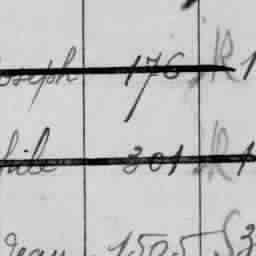 oseph 176 R 1
hile 301 R 1
Jean 1505 S3